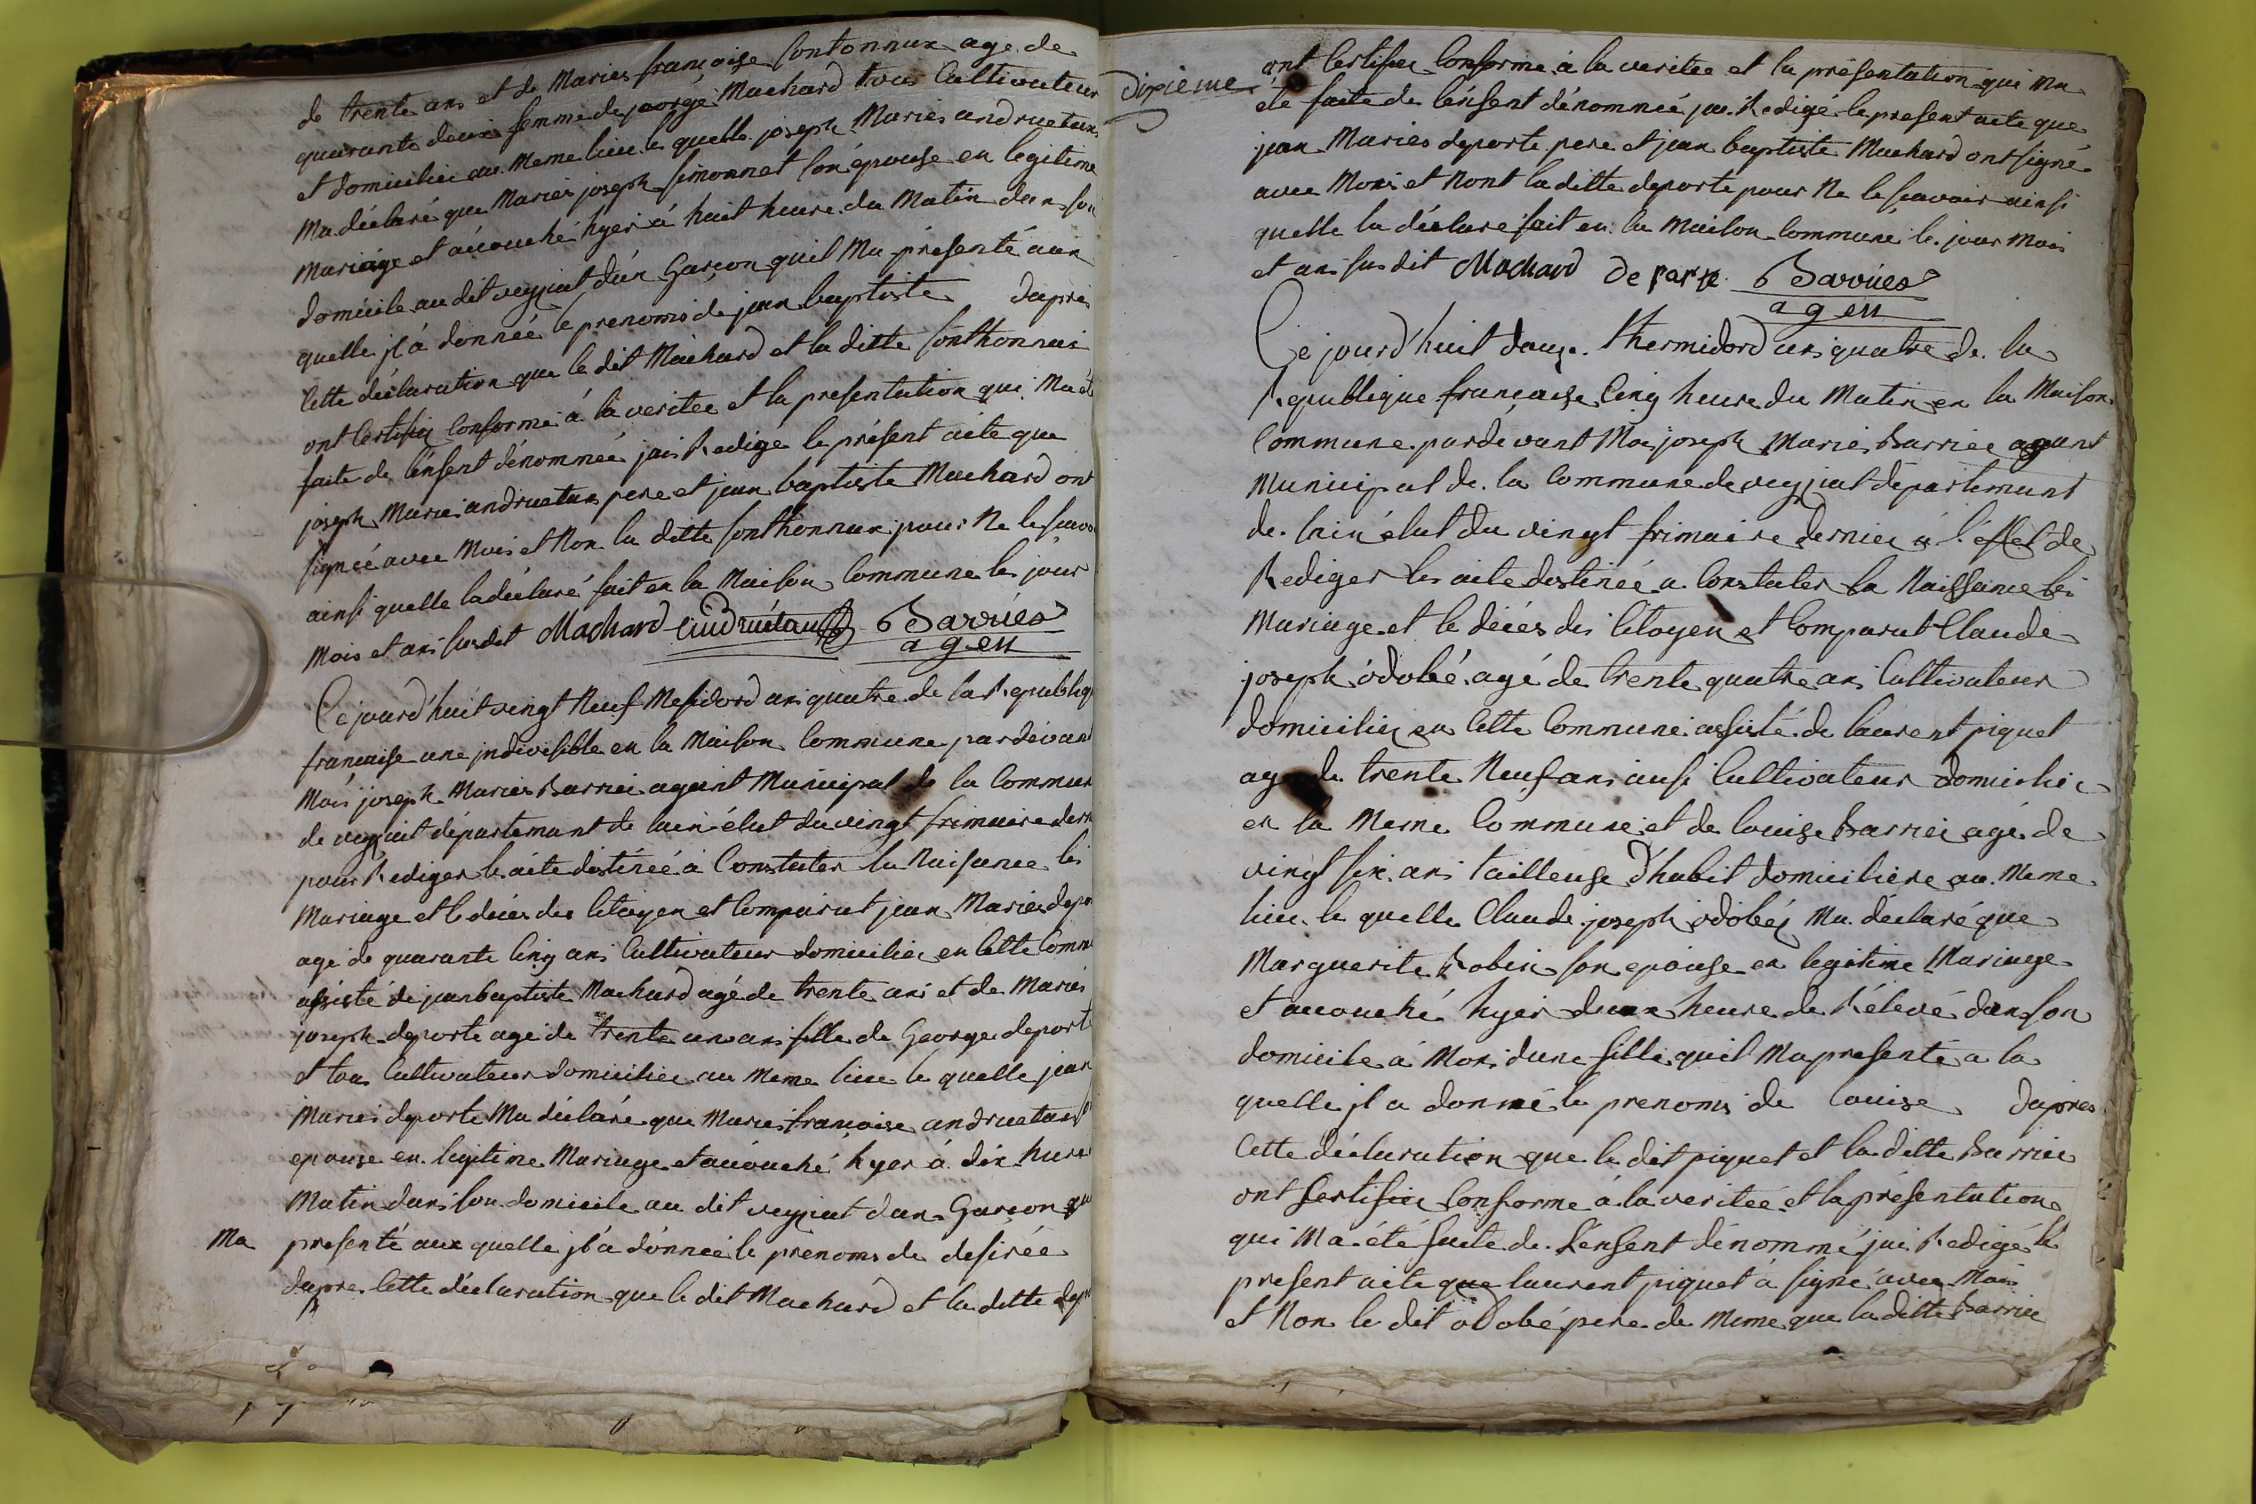 de trente ans et de Maries françoise Sontonnax age de
quarante deuxs femme de jeorge Machard tous Cultivateur
et domiciliez au Meme lieu le quelle joseph Maries andruetan
Ma déclaré que Maries joseph Simonnet son épouse en legitime
Mariage et acouché hyer á huit heure du Matin dan son
domicile au dit veyziat d'un Garçon quil Ma présenté aux
quelle jl á donnéé le prenoms de jean baptiste dapres
Cette déclaration que le dit Machard et la ditte Sonthonnax
ont Certifiez Conforme á la veritee et la presentation qui Ma été
faite de lénfent dénomméé jais Redigé le présent acte que
joseph Maries andruetan pere et jean baptiste Machard ont
signéé avec Mois et Non la ditte Sonthonnax pour Ne le savoi
ainsi quelle la déclaré fait en la Maison Commune les jour
Mois et ans susdit Machard andruétan Barriées
agen
Ce jourd'huit vingt Neuf Mesidord ans quatre de la Republiq
francaise une jndivisible en la Maison Commune pardevand
Mois joseph Maries Barriee agent Municipal de la Commun
de veyziat départemant de lain élut du vingt frimaire dern
pour Rediger les acte destinéé á Constater la Naisance les
Mariage et le déces des Citoyen et Comparut jean Maries depor
agé de quarante Cinq ans Cultivateur domiciliez en Cette Commu
assisté de jean baptiste Machard agé de trente ans et de Maries
joseph deporte agé de trente un ans fille de George deporte
et tous Cultivateur domiciliee au Meme lieu le quelle jean
Maries deporte Ma déclaré que Maries francoise andruetan
epouse en legitime Mariage et acouché hyer á dix heure
Matin dans son domicile au dit veyziat dun Garcon qu
Ma présenté aux quelle jl á donnéé le prenoms de desirée
dapres Cette déclaration que le dit Machard et la ditte depo
Dixieme
ont Certifiez Conforme á la veritee et la présentation qui Ma
éte faite de lénfent dénomméé jai Redigé le present acte que
jean Maries deporte pere et jean baptiste Machard ont signé
avec Mois et Nont la ditte deporte pour Ne le seavoir ainsi
quelle la déclare fait en la Maison Commune le jour Mois
et ans susdit Machard de porte Barriées
agen
Ce jourd'huit douze thermidord ans quatre de la
Republique françaige Cinq heure du Matin en la Maison
Commune pardevant Moi joseph Maries Barriee agant
Municipal de la Commune de veyziat départemant
de lain élut du vingt frimaire dernier á l'éffet de
Rediger les acte destinéé a Constater la Naissance les
Mariage et le déces des Citoyen et Comparut Claude
joseph ódobé agé de trente quatre ans Cultivateur
domiciliez en Cette Commune assisté de laurent piquet
age de trente Neuf ans ausi Cultivateur domicilie
en la Meme Commune et de louise Barriee agé de
vingt six ans tailleuge d'habit domiciliere au Meme
lieu le quelle Claude joseph ódobéz Ma déclaré que
Marguerite Robin son epouse en legitime Mariage
et acouché hyer deux heure de Rélevé dan son
domicile á Mons dune fille quil Ma presenté a la
quelle jl a donné le prenoms de Louise dapres
Cette déclaration que le dit piquet et la ditte Barriee
ont Certifiee Conforme á la veritee et la présentation
qui Ma été faite de lénfent dénommé jai Redigé le
present acte que laurent piquet á signé avec Mois
et Non le dit odobé pere de Meme que la ditte Barriee